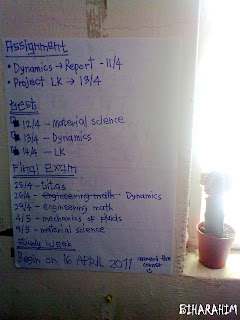 Assignment
• Dynamics → Report - 11/4
• Project LK → 13/4
test
12/4 - Material science
13/4 - Dynamics
14/4 - LK
Final Exam
25/4 - titas
26/4 - Engineering math - Dynamics
29/4 - engineering math
4/5 - mechanics of fluids
9/5 - material science
Study Week
Begin on 16 APRIL 2011 around the corner
BIHARAHIM